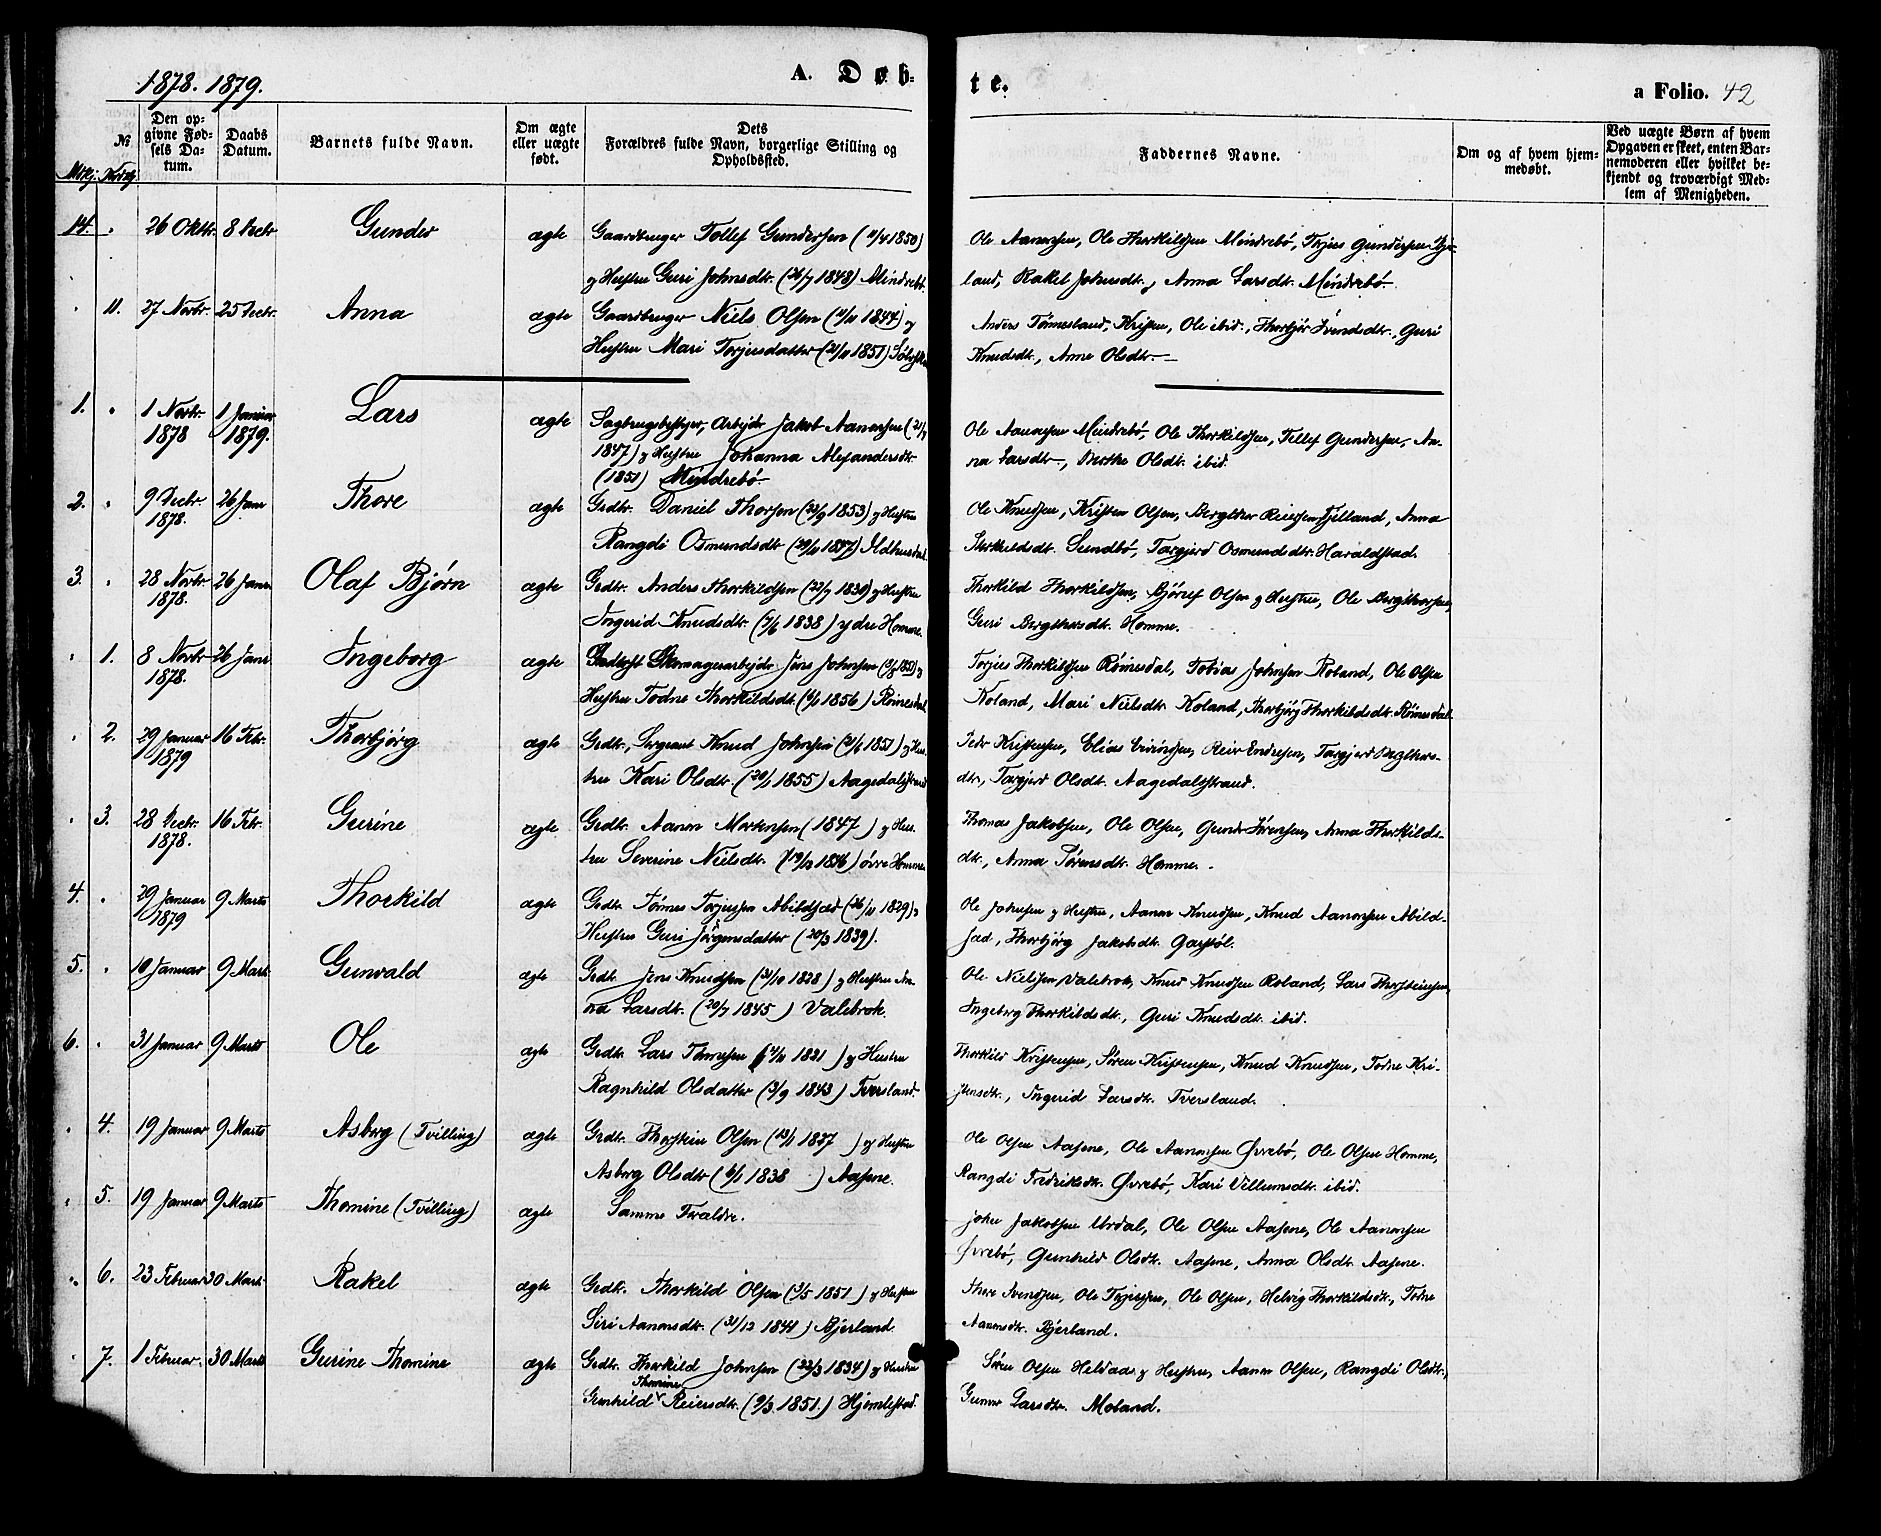 1878. 1879.
A. Døb-
te.
a Folio. 42
№
Mskj. Kvindkj.
Den op-
givne Fød-
sels Da-
tum.
Daabs
Datum.
Barnets fulde Navn.
Om ægte
eller uægte
født.
Dets
Forældres fulde Navn, borgerlige Stilling og
Opholdssted.
Faddernes Navne.
Om og af hvem hjem-
medøbt.
Ved uægte Børn af hvem
Opgaven er skeet, enten Bar-
nemoderen eller hvilket be-
kjendt og troværdigt Med-
lem af Menigheden.
14. 26 Oktbr. 8 Decbr Gunder ægte Gaardbruger Tollef Gundersen (11/4 1850)
g Hustru Guri Johnsdt. (26/7 1848) Mindrebø.
Ole Aanensen, Ole Thorkildsen Mindrebø, Terjus Gundersen
land, Rakel Johnsdt. g Anna Larsdt. Mindrebø
11. 27 Novbr. 25 Decbr. Anna ægte Gaardbruger Niels Olsen (11/11 1847) g
Hustru Mari Torjusdatter (21/11 1851)
Anders Tønnesland, Kristen, Ole ibid., Thorbjør Svendsdtr., Guri
Knudsdt., Anne Olsdt.
1. 1 Novbr. 1878 1 Januar 1879. Lars ægte Sagbrugsbestyr, Arbejdr Jakob Aanensen (21/7
1847) g Hustru Johanna Alexandersdt.
(1851) Mindrebø.
Ole Aanensen Mindrebø, Ole Thorkildsen, Tellef Gundersen, An-
na Larsdt., Berthe Olsdt. ibid.
2. 9 Decbr 1878. 26 Janr Thore ægte Grdbr. Daniel Thorsen (23/9 1853) g Hustru
Rangdi Osmundsdt (29/11 1847)
Ole Knudsen, Kristen Olsen, Bergthor Reiersen Fjelland, Anna
Therkildsdt. Sundbø, Targjerd Osmundsdtr. Haraldstad.
3. 28 Novbr 1878. 26 Janr Olaf Bjørn ægte Grdbr. Anders Thorkildsen (22/7 1830) g Hustru
Ingerid Knudsdt. (7/6 1838) ydre Homme.
Thorkild Thorkildsen, Bjørnef Olsen g Hustru, Ole Bergthorsen,
Guri Bergthorsdt. Homme.
1. 8 Novbr 1878. 26 Janr Ingeborg ægte Skomagerarbejdr Jens Johnsen
Hustru Todne Thorkildsdt. (4/1 1856) Rømesdal
Torjus Thorkildsen Rømesdal, Tobias Johnsen Roland, Ole Olsen
Roland, Mari Nielsdt. Roland, Thorbjørg Thorkildsdt. Rømesdal.
2. 29 Januar 1879 16 Febr. Thorbjørg ægte Grdbr., Sergeant Knud Johnsen (21/6 1851) g Hus-
tru Kari Olsdt. (20/1 1855) Aagedalstrand
Pedr Kristensen, Elias Eivindsen, Reier Endresen, Targjerd Bergthors-
dtr., Targjerd Olsdt. Aagedalstrand.
3. 28 Decbr. 1878. 16 Febr. Gurine ægte Grdbr. Aanen Mortensen (1847) g Hus-
tru Severine Nielsdt. (19/12 1846) øvre Homme
Thomas Jakobsen, Ole Olsen, Gundr Sørensen, Anna Thorkilds-
dt., Anna Sørensdt. Homme.
4. 29 Januar 1879 9 Marts Thorkild ægte Grdbr. Tønnes Torjussen Abildsæd (26/11 1829) g
Hustru Guri Jørgensdatter (20/3 1839).
Ole Johnsen g Hustru, Aanen Knudsen, Knud Aanensen Abild-
sæd, Thorbjørg Jakobsdt. Garstøl.
5. 10 Januar 9 Mart Gunvald ægte Grdbr. Jens Knudsen (31/10 1828) g Hustru An-
na Larsdt. (20/7 1845) Valebrok.
Ole Nielsen Valebrok, Knud Knudsen Roland, Lars Thorsteinsen,
Ingeborg Thorkildsdt., Guri Knudsdt. ibid.
6. 31 Januar 9 Marts Ole ægte Grdbr. Lars Thomsen (4/11 1821) g Hustru
Ragnhild Olsdatter (3/9 1843) Tversland.
Thorkild Kristensen, Søren Kristensen, Knud Knudsen, Todne Kri-
stensdt., Ingerid Larsdt. Tversland.
4. 19 Januar 9 Marts Asborg (Tvilling) ægte Grdbr. Thorstein Olsen (23/1 1837) g Hustru
Asborg Olsdt (6/1 1838) Aasene.
Ole Olsen Aasene, Ole Aanensen Øvrebø, Ole Olsen Homme,
Rangdi Fredriksdt. Øvrebø, Kari Villumsdt. ibid.
5. 19 Januar 9 Marts Thomine (Tvilling) ægte Samme Forældre.
John Jakobsen Urdal, Ole Olsen Aasene, Ole Aanensen
Øvrebø, Gunhild Olsdt. Aasene, Anna Olsdt. Aasene.
6. 23 Februar 30 Mart Rakel ægte Grdbr. Thorkild Olsen (3/5 1851) g Hustru
Siri Aanensdt. (31/12 1844) Bjerland
Thore Svendsen, Ole Terjussen, Ole Olsen, Helvig Thorkildsdt., Todne
Aanensdt. Bjerland.
7. 1 Februar. 30 Marts Gurine Thomine ægte Grdbr. Thorkild Johnsen (22/3 1834) g Hustru
Gunhild Thomine Reiersdt. (9/3 1851) Hjemlestad.
Søren Olsen Hildaas g Hustru, Aanen Olsen, Rangdi Olsdt.,
Gunnr Larsdtr. Moland.